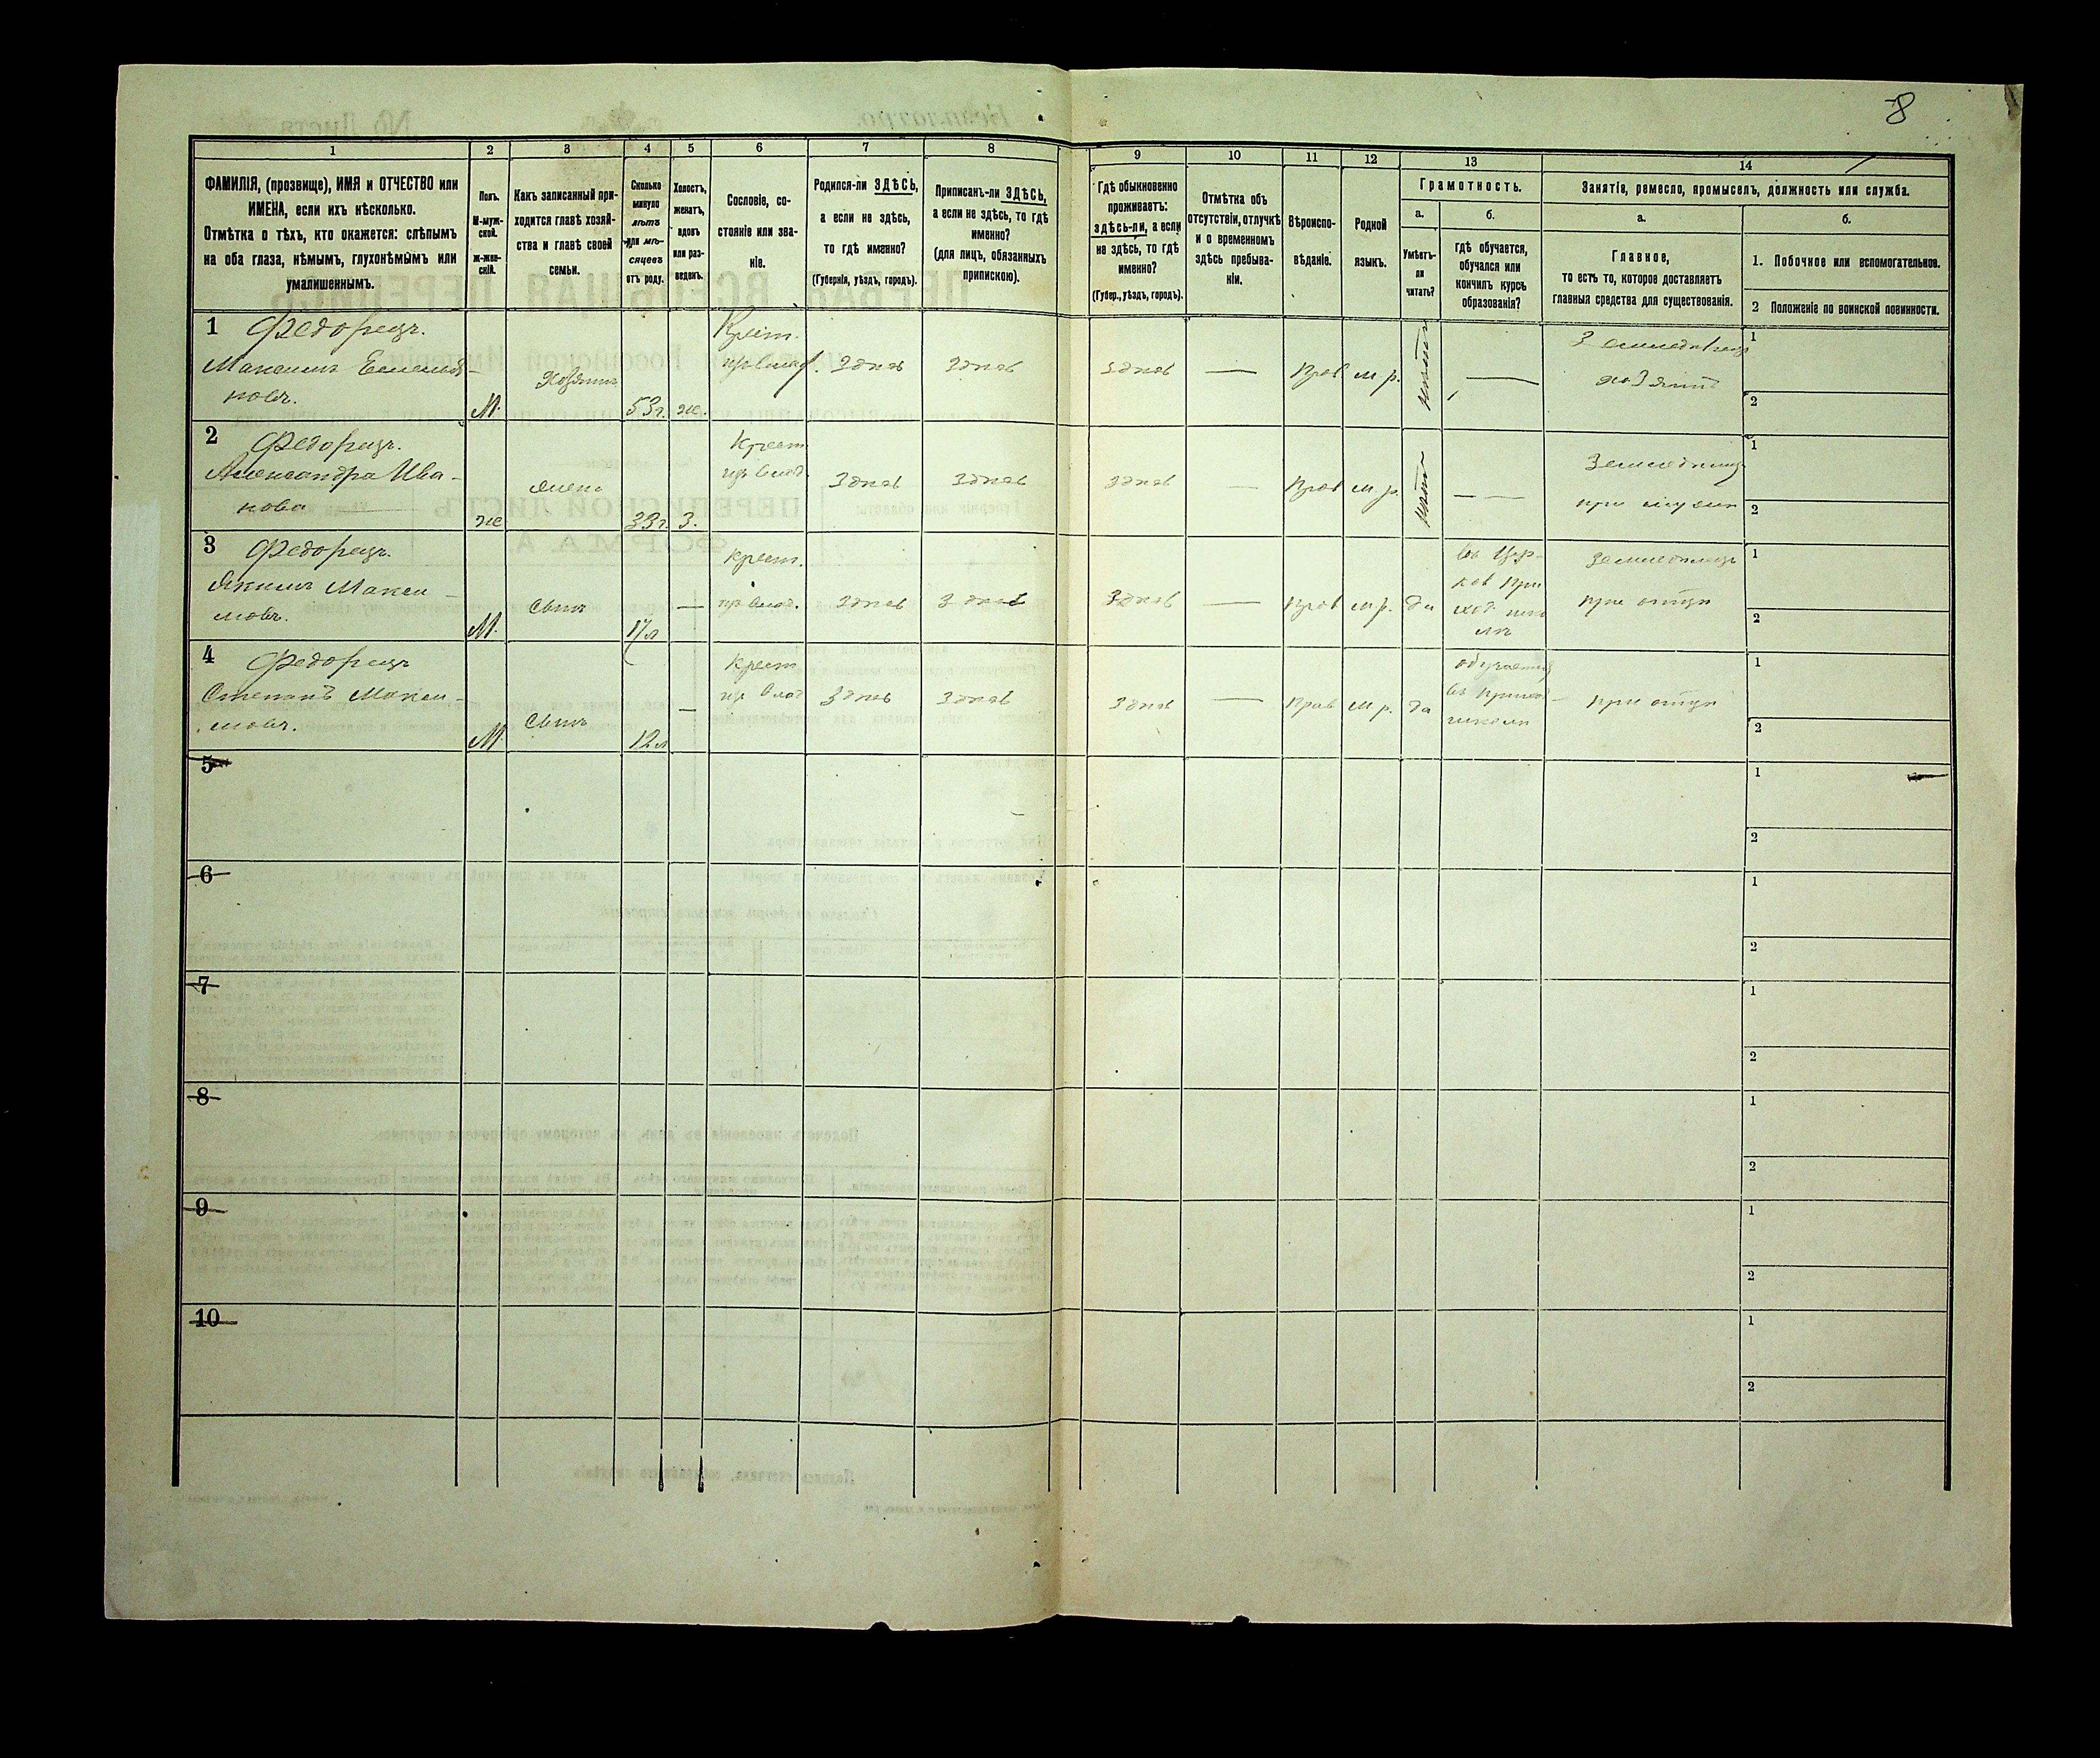 8
1 2 3 4 5 6 7 8 9 10 11 12 13 14
ФАМИЛІЯ, (прозвище), ИМЯ и ОТЧЕСТВО или
ИМЕНА, если ихъ нѣсколько.
Отмѣтка о тѣхъ, кто окажется: слѣпымъ
на оба глаза, нѣмымъ, глухонѣмымъ или
умалишеннымъ.
Полъ.
М-муж-
ской.
ж-жен-
скій.
Какъ записанный при-
ходится главѣ хозяй-
ства и главѣ своей
семьи.
Сколько
минуло
лѣтъ
или мѣ-
сяцевъ
отъ роду.
Холостъ,
женатъ,
вдовъ
или раз-
веденъ.
Сословіе, со-
стояніе или зва-
ніе.
Родился-ли ЗДѢСЬ,
а если не здѣсь,
то гдѣ именно?
(Губернія, уѣздъ, городъ).
Приписанъ-ли ЗДѢСЬ,
а если не здѣсь, то гдѣ
именно?
(для лицъ, обязанныхъ
припискою).
Гдѣ обыкновенно
проживаетъ:
здѣсь-ли, а если
не здѣсь, то гдѣ
именно?
(Губер., уѣздъ, городъ).
Отмѣтка объ
отсутствіи, отлучкѣ
и о временномъ
здѣсь пребыва-
ніи.
Вѣроиспо-
вѣданіе.
Родной
языкъ.
Грамотность.
а.
Умѣетъ-
ли
читать?
б.
Гдѣ обучается,
обучался или
кончилъ курсъ
образованія?
Занятія, ремесло, промыселъ, должность или служба.
а.
Главное,
то есть то, которое доставляетъ
главныя средства для существованія.
б.
1. Побочное или вспомогательное.
2 Положеніе по воинской повинности.
1 Федорецъ.
Максимъ Емелья-
новъ.
М.
Хозяинъ
53 г.
ж.
Крест.
здѣсь
здѣсь
здѣсь
—
Прав.
м р.
нѣтъ
—
Земледѣлецъ
хозяинъ
1
2
2 Федорецъ.
Александра Ива-
нова
ж
жена
33 г.
з.
Крест
здѣсь
здѣсь
здѣсь
—
Прав
м р.
нѣтъ
— —
при мужѣ
1
2
3 Федорецъ.
Якимъ Макси-
мовъ.
М.
Сынъ
17 л
—
крест.
здѣсь
здѣсь
здѣсь
—
Прав
м р.
да
въ цер-
ков при
ход. шко
лѣ
Земледѣлецъ
при отцѣ
1
2
4 Федорецъ
Степанъ Макси-
мовъ.
М.
Сынъ
12 л
—
крест
здѣсь
здѣсь
здѣсь
—
Прав
м р.
да
обучается
въ приход
школѣ
при отцѣ
1
2
5
1
2
6
1
2
7
1
2
8
1
2
9
1
2
10
1
2